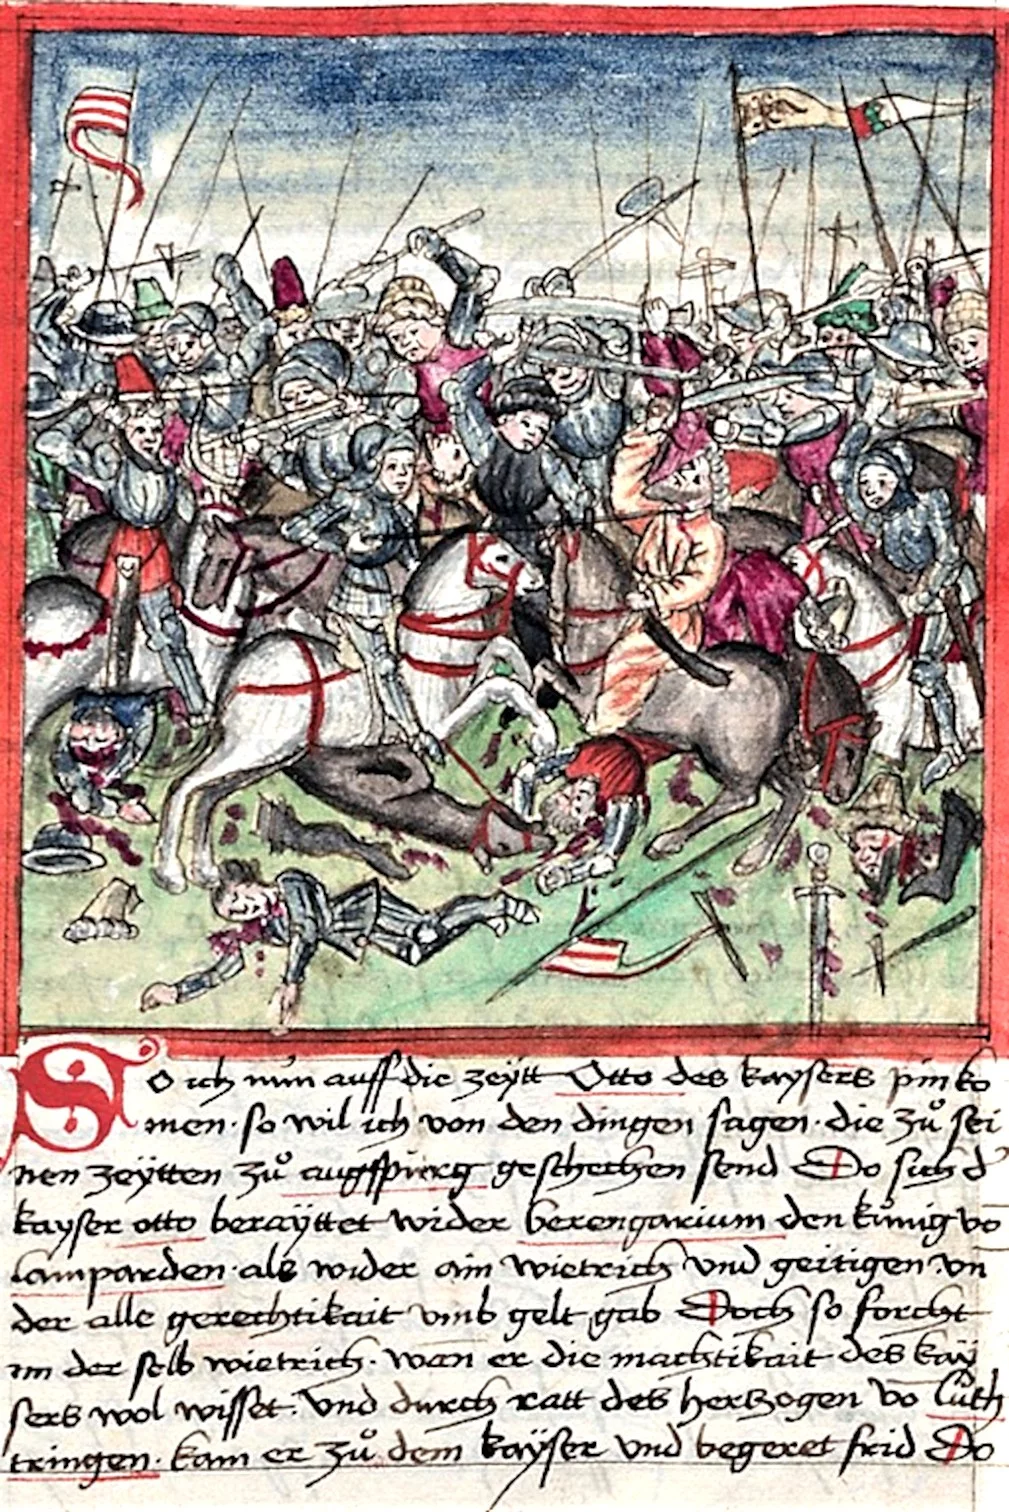 So ich nun auff die zeÿtt Otto des kaÿsers pin ko
men · so wil ich von den dingen sagen · die zů sei
nen zeÿtten zů augspurg geschechen send Do sich d'
kayser otto beraÿttet wider berengarium den kűnig vo
lamparden · als wider ain wietrich vnd geitigen · vn
der alle gerechtikait vmb gelt gab Doch so forcht
im der selb wietrich · wan er die machtikait des kaÿ
sers wol wisset · vnd durch ratt des herszogen vo luth
tringen · kam er zů dem kaÿser vnd begeret frid Do